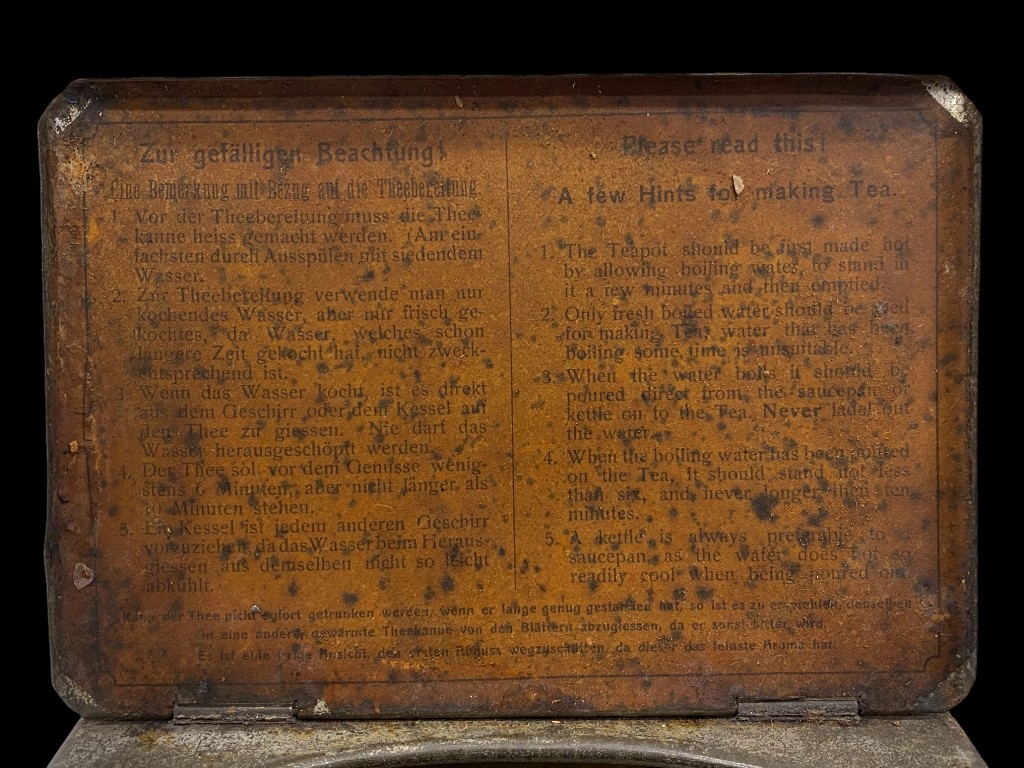 Zur gefälligen Beachtung!
Eine Bemerkung mit Bezug auf die Theebereitung.
1. Vor der Theebereitung muss die Thee-
kanne heiss gemacht werden. (Am ein-
fachsten durch Ausspülen mit siedendem
Wasser.
2. Zur Theebereitung verwende man nur
kochendes Wasser, aber nur frisch ge-
kochtes, da Wasser, welches schon
längere Zeit gekocht hat, nicht zweck-
entsprechend ist.
3. Wenn das Wasser kocht ist es direkt
aus dem Geschirr oder dem Kessel auf
den Thee zu giessen. Nie darf das
Wasser herausgeschöpft werden.
4. Der Thee soll vor dem Genusse wenig-
stens 6 Minuten, aber nicht länger als
10 Minuten stehen.
5. Ein Kessel ist jedem anderen Geschirr
vorzuziehen, da das Wasser beim Heraus-
giessen aus demselben nicht so leicht
abkühlt.
Please read this!
A few Hints for making Tea.
1. The Teapot should be first made hot
by allowing boiling water, to stand in
it a few minutes and then emptied.
2. Only fresh boiled water should be used
for making Tea, water that has been
boiling some time is unsuitable.
3. When the water boils it should be
poured direct from the saucepan or
kettle on to the Tea. Never ladel out
the water.
4. When the boiling water has been poured
on the Tea, it should stand not less
than six, and never longer then ten
minutes.
5. A kettle is always preferable to a
saucepan, as the water does not so
readily cool when being poured out.
Kann der Thee nicht sofort getrunken werden, wenn er lange genug gestanden hat, so ist es zu empfehlen, denselben
in eine andere gewärmte Theekanne von den Blättern abzugiessen, da er sonst bitter wird.
Es ist eine irrige Ansicht, den ersten Abguss wegzuschütten, da dieser das feinste Aroma hat.